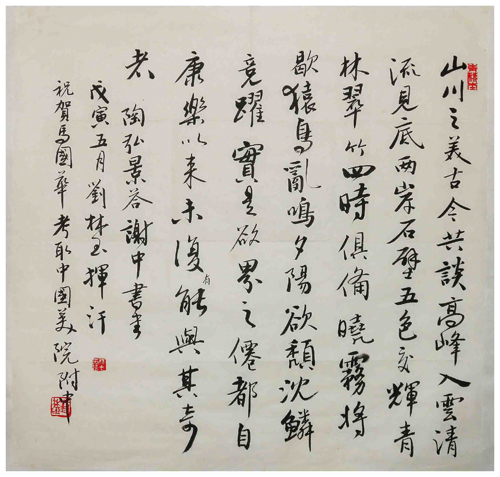 山川之美古今共談高峰入雲清
流見底兩岸石壁五色交輝青
林翠竹四時俱備曉霧將
歇猿鳥亂鳴夕陽欲頹沈鱗
竟躍實是欲界之僊都自
康樂以來未復有能與其奇
者 陶弘景答謝中書書
戊寅五月劉林玉揮汗
祝賀馬國華考取中國美院附中